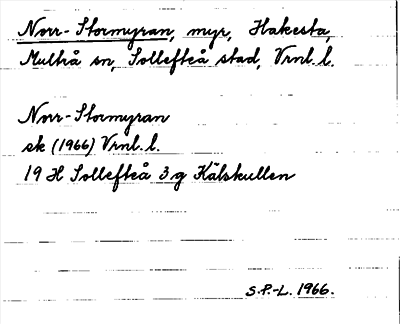 Norr-Stormyran, myr, Hakesta,
Multrå sn, Sollefteå stad, Vrnl. l.
Norr-Stormyran
ek (1966) Vrnl. l.
19 H Sollefteå 3g Kälskullen
S.P.-L. 1966.